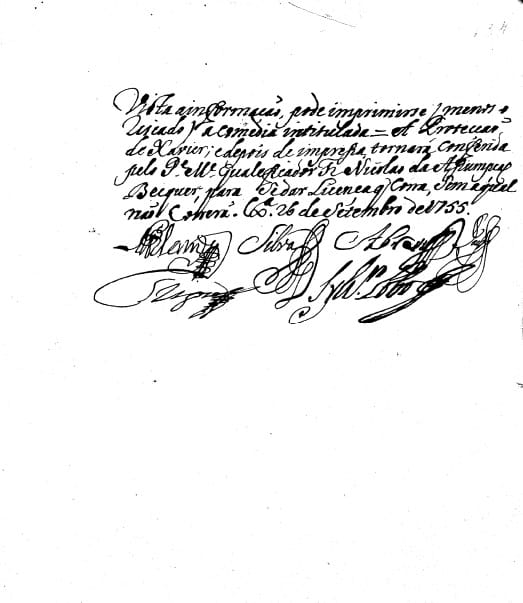 Vista a informacaõ, pode imprimirse, menos o
riscado, a Comedia intitulada = A Protecçaõ
de Xavier; e depois de impressa tornará conferida
pelo P.e M.e Qualeficador Fr. Nicolao da Assumpçaõ
Becquer, para se dar licença q corra, sem a qual
naõ correrá. Lx.a 26 de Setembro de 1755.
Silva Abreu
Sylv.ro Lobo